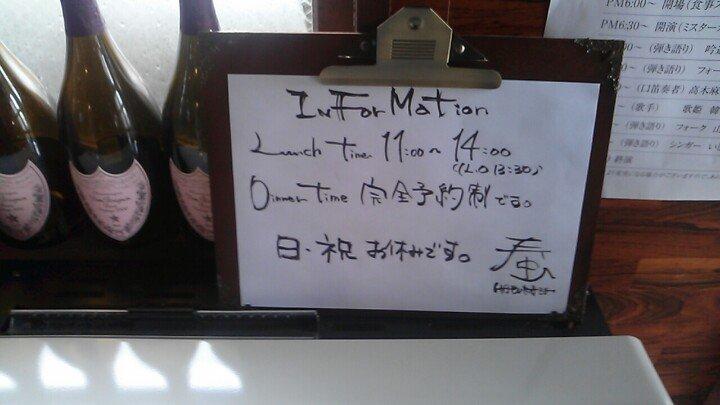 InForMation
Lunch time 11:00~14:00
(L.O 13:30)
Dinner Time 完全予約制です。
日・祝 お休みです。
PM6:00~ 開場(食事
PM6:30~ 開演(ミスター
(弾き語り)
(弾き語り) フォー
(口笛奏者) 高木麻
(歌手) 歌姫
(弾き語り) フォーク
(弾き語り) シンガー
終演